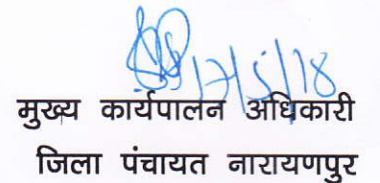 17/5/18
मुख्य कार्यपालन अधिकारी
जिला पंचायत नारायणपुर